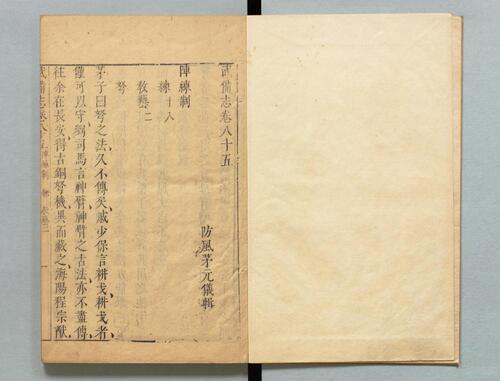 武備志卷八十五
防風茅元儀輯
陣練制
練十八
教藝二
弩
茅子曰弩之法久不傳矣戚少保言耕戈耕戈者
僅可以守劉司馬言神臂神臂之古法亦不盡傳
往余在長安得古銅弩機異而藏之海陽程宗猷
武備志卷八十五 陣練制 練 教藝二 一